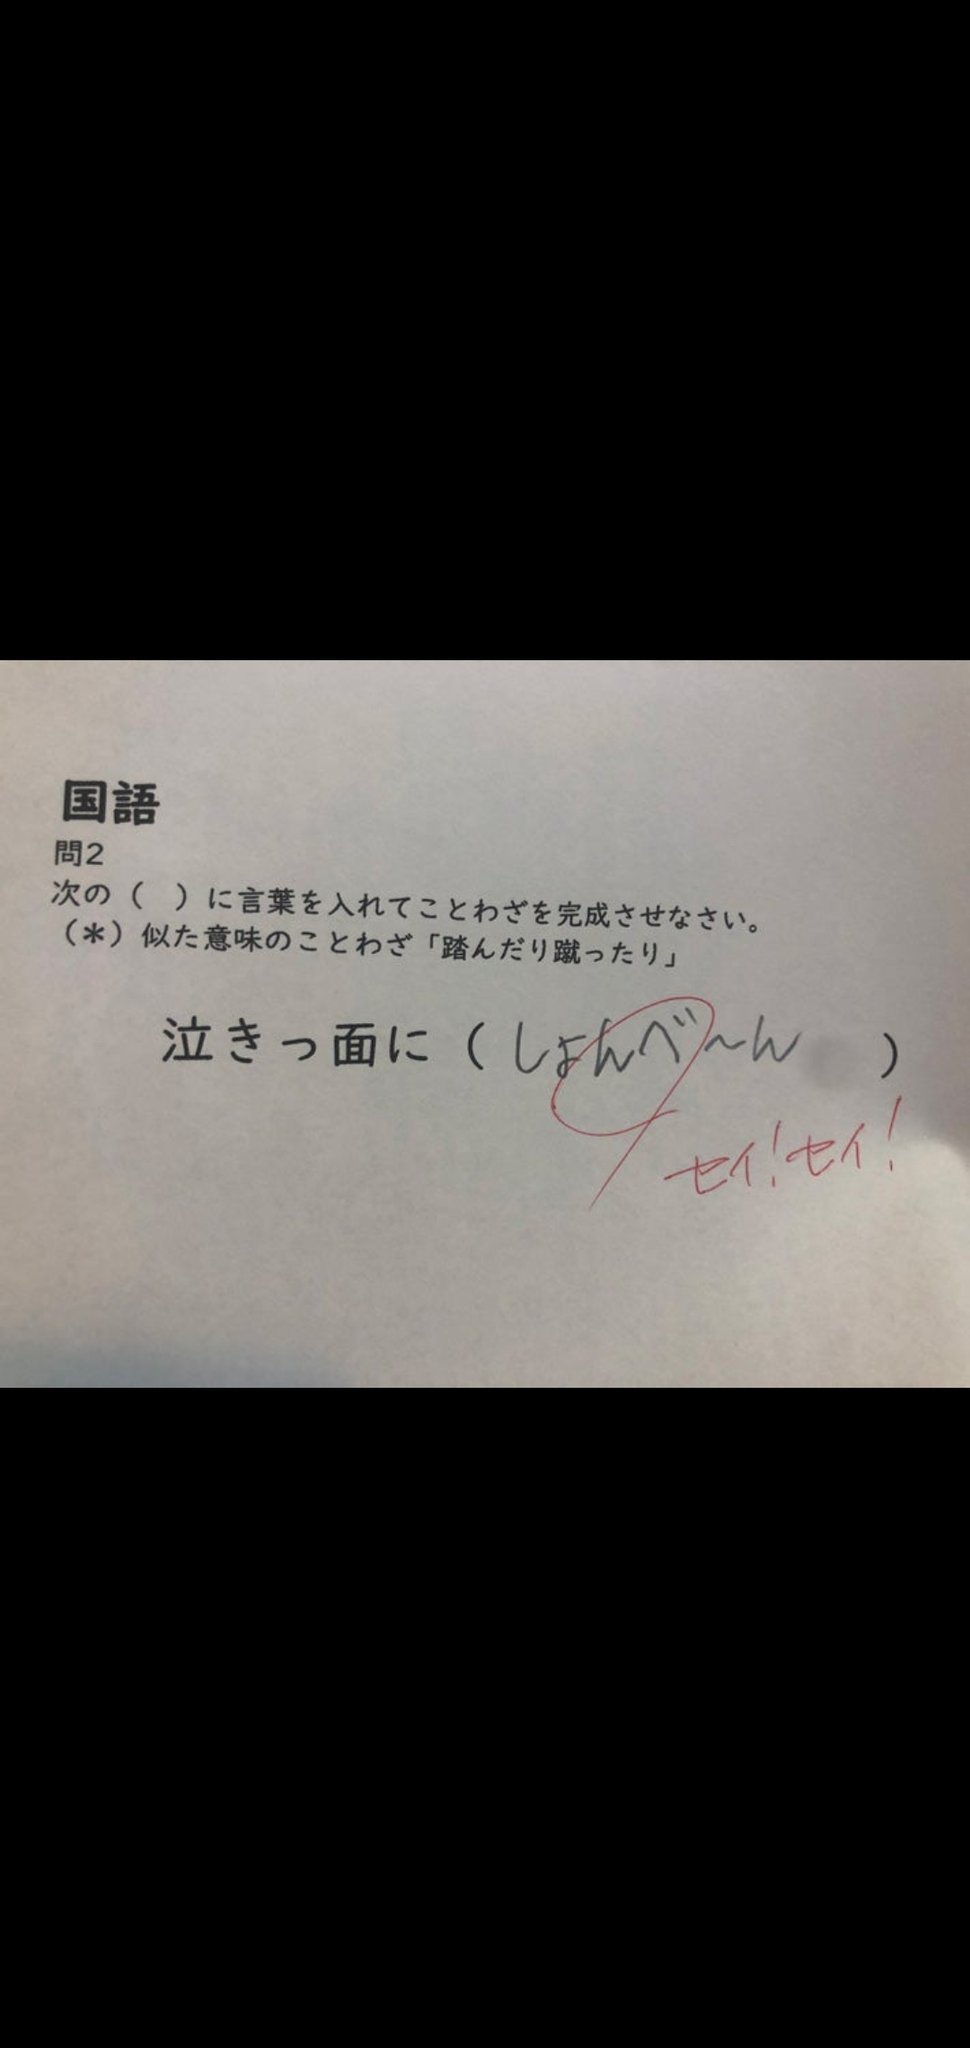 国語
問2
次の（　）に言葉を入れてことわざを完成させなさい。
（＊）似た意味のことわざ「踏んだり蹴ったり」
泣きっ面に（しょんべ〜ん　）
セイ！セイ！